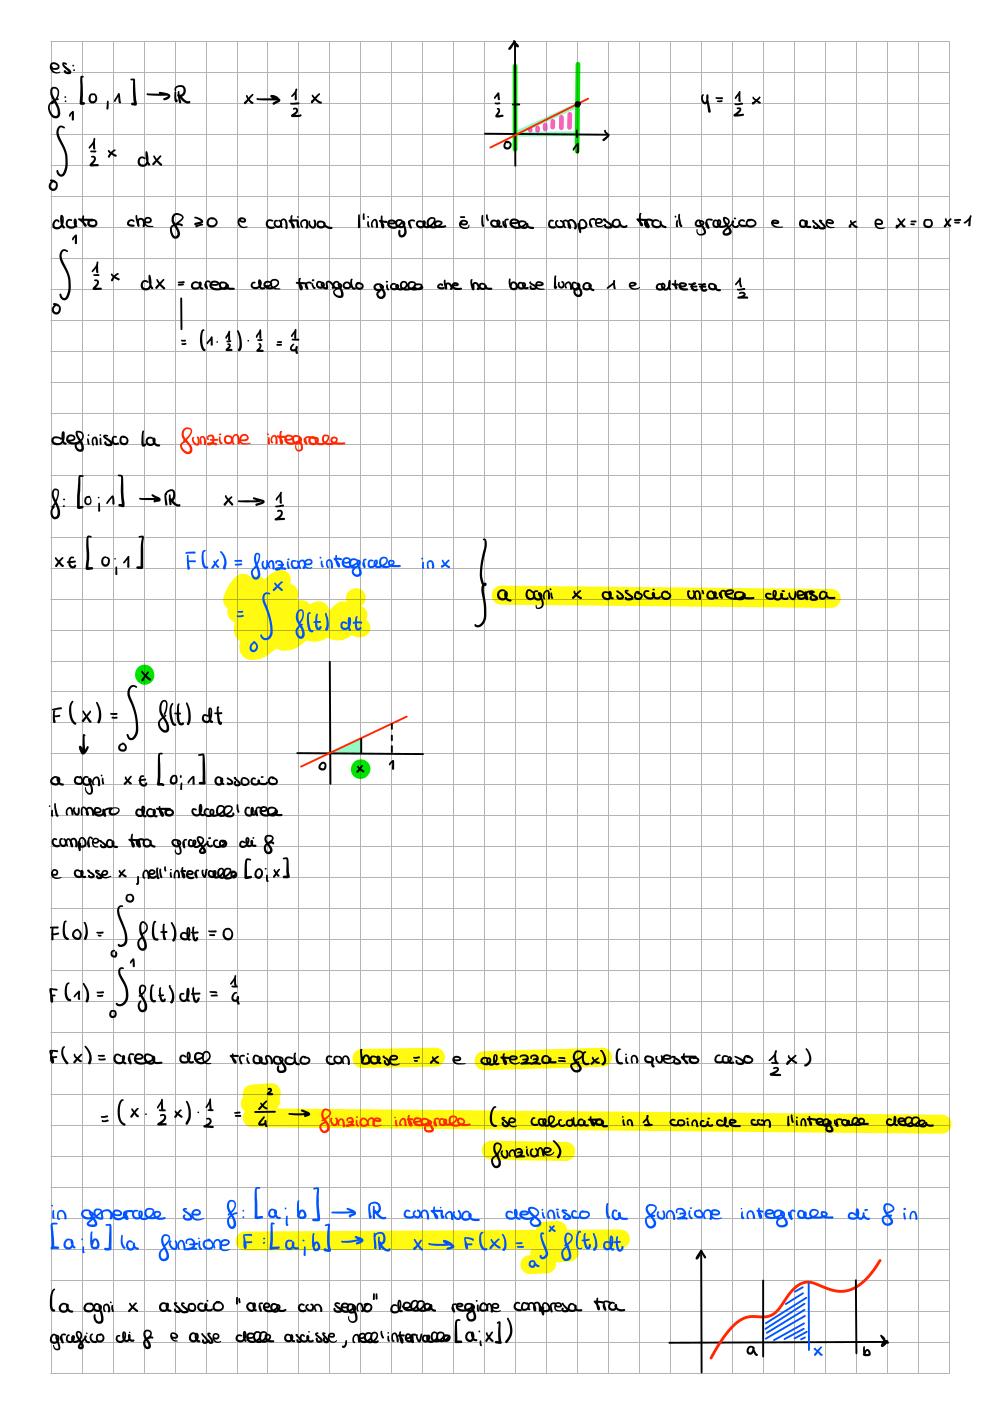 es:
f: [0,1] → ℝ   x → 1/2 x   y = 1/2 x
1/2
0 1
∫₀¹ 1/2 x dx
dato che f ≥ 0 e continua l'integrale è l'area compresa tra il grafico e asse x e x=0 x=1
∫₀¹ 1/2 x dx = area del triangolo giallo che ha base lunga 1 e altezza 1/2
= (1 · 1/2) · 1/2 = 1/4
definisco la funzione integrale
f: [0;1] → ℝ   x → 1/2
x ∈ [0;1]   F(x) = funzione integrale in x
= ∫₀ˣ f(t) dt
a ogni x associo un'area diversa
F(x) = ∫₀ˣ f(t) dt
0 x 1
a ogni x ∈ [0;1] associo
il numero dato dall'area
compresa tra grafico di f
e asse x, nell'intervallo [0;x]
F(0) = ∫₀⁰ f(t) dt = 0
F(1) = ∫₀¹ f(t) dt = 1/4
F(x) = area del triangolo con base = x e altezza = f(x) (in questo caso 1/2 x)
= (x · 1/2 x) · 1/2 = x²/4 → funzione integrale (se calcolata in 1 coincide con l'integrale della
funzione)
in generale se f: [a;b] → ℝ continua definisco la funzione integrale di f in
[a;b] la funzione F: [a;b] → ℝ   x → F(x) = ∫ₐˣ f(t) dt
(a ogni x associo "area con segno" della regione compresa tra
grafico di f e asse delle ascisse, nell'intervallo [a;x])
a x b